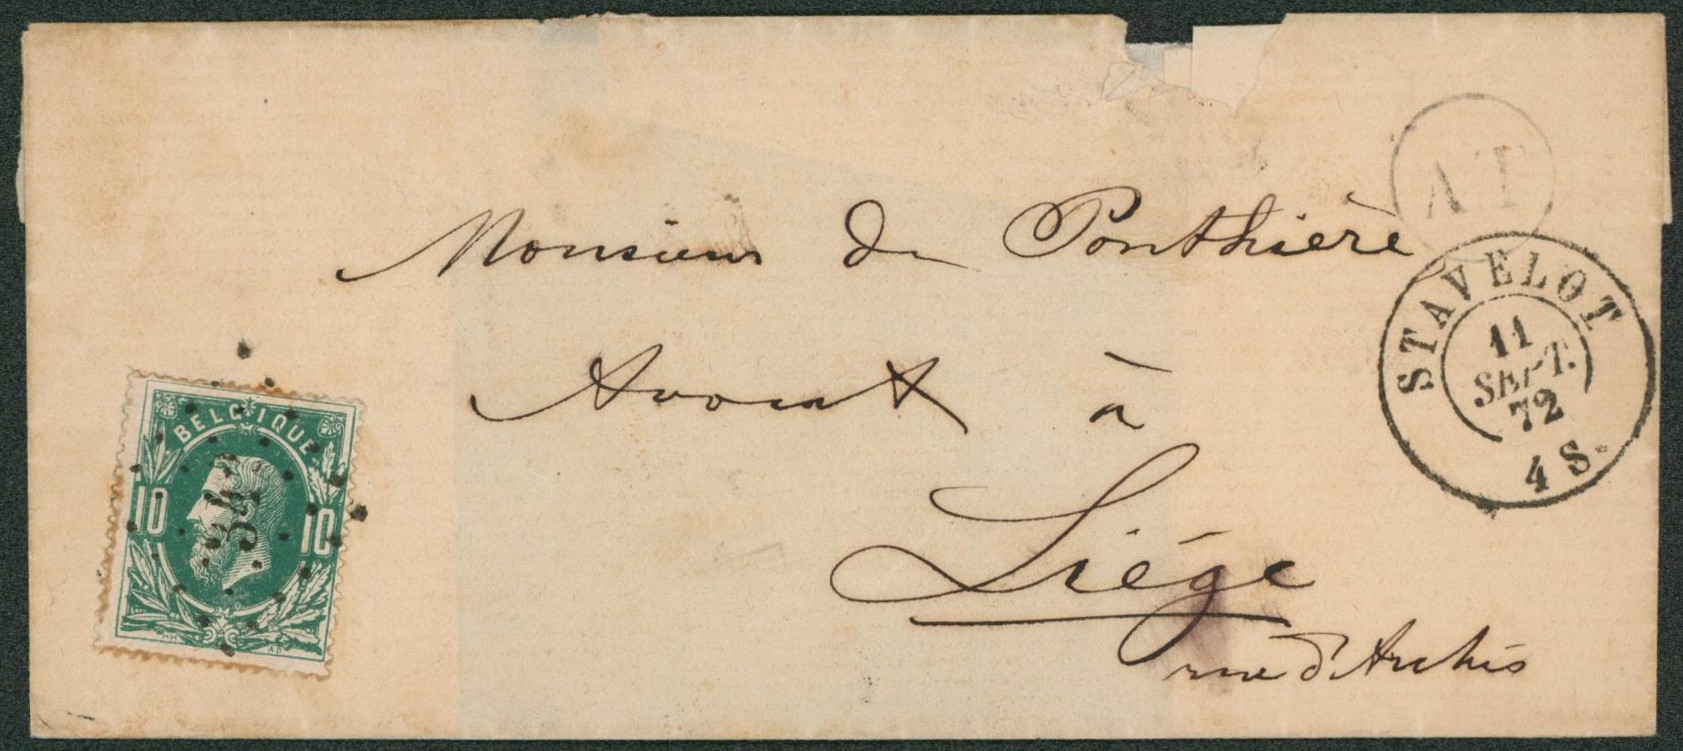 AT
Monsieur de Ponthière
STAVELOT
11
SEPT.
72
4 S.
Avocat à
Liége
rue d'Archis
BELGIQUE
10 10